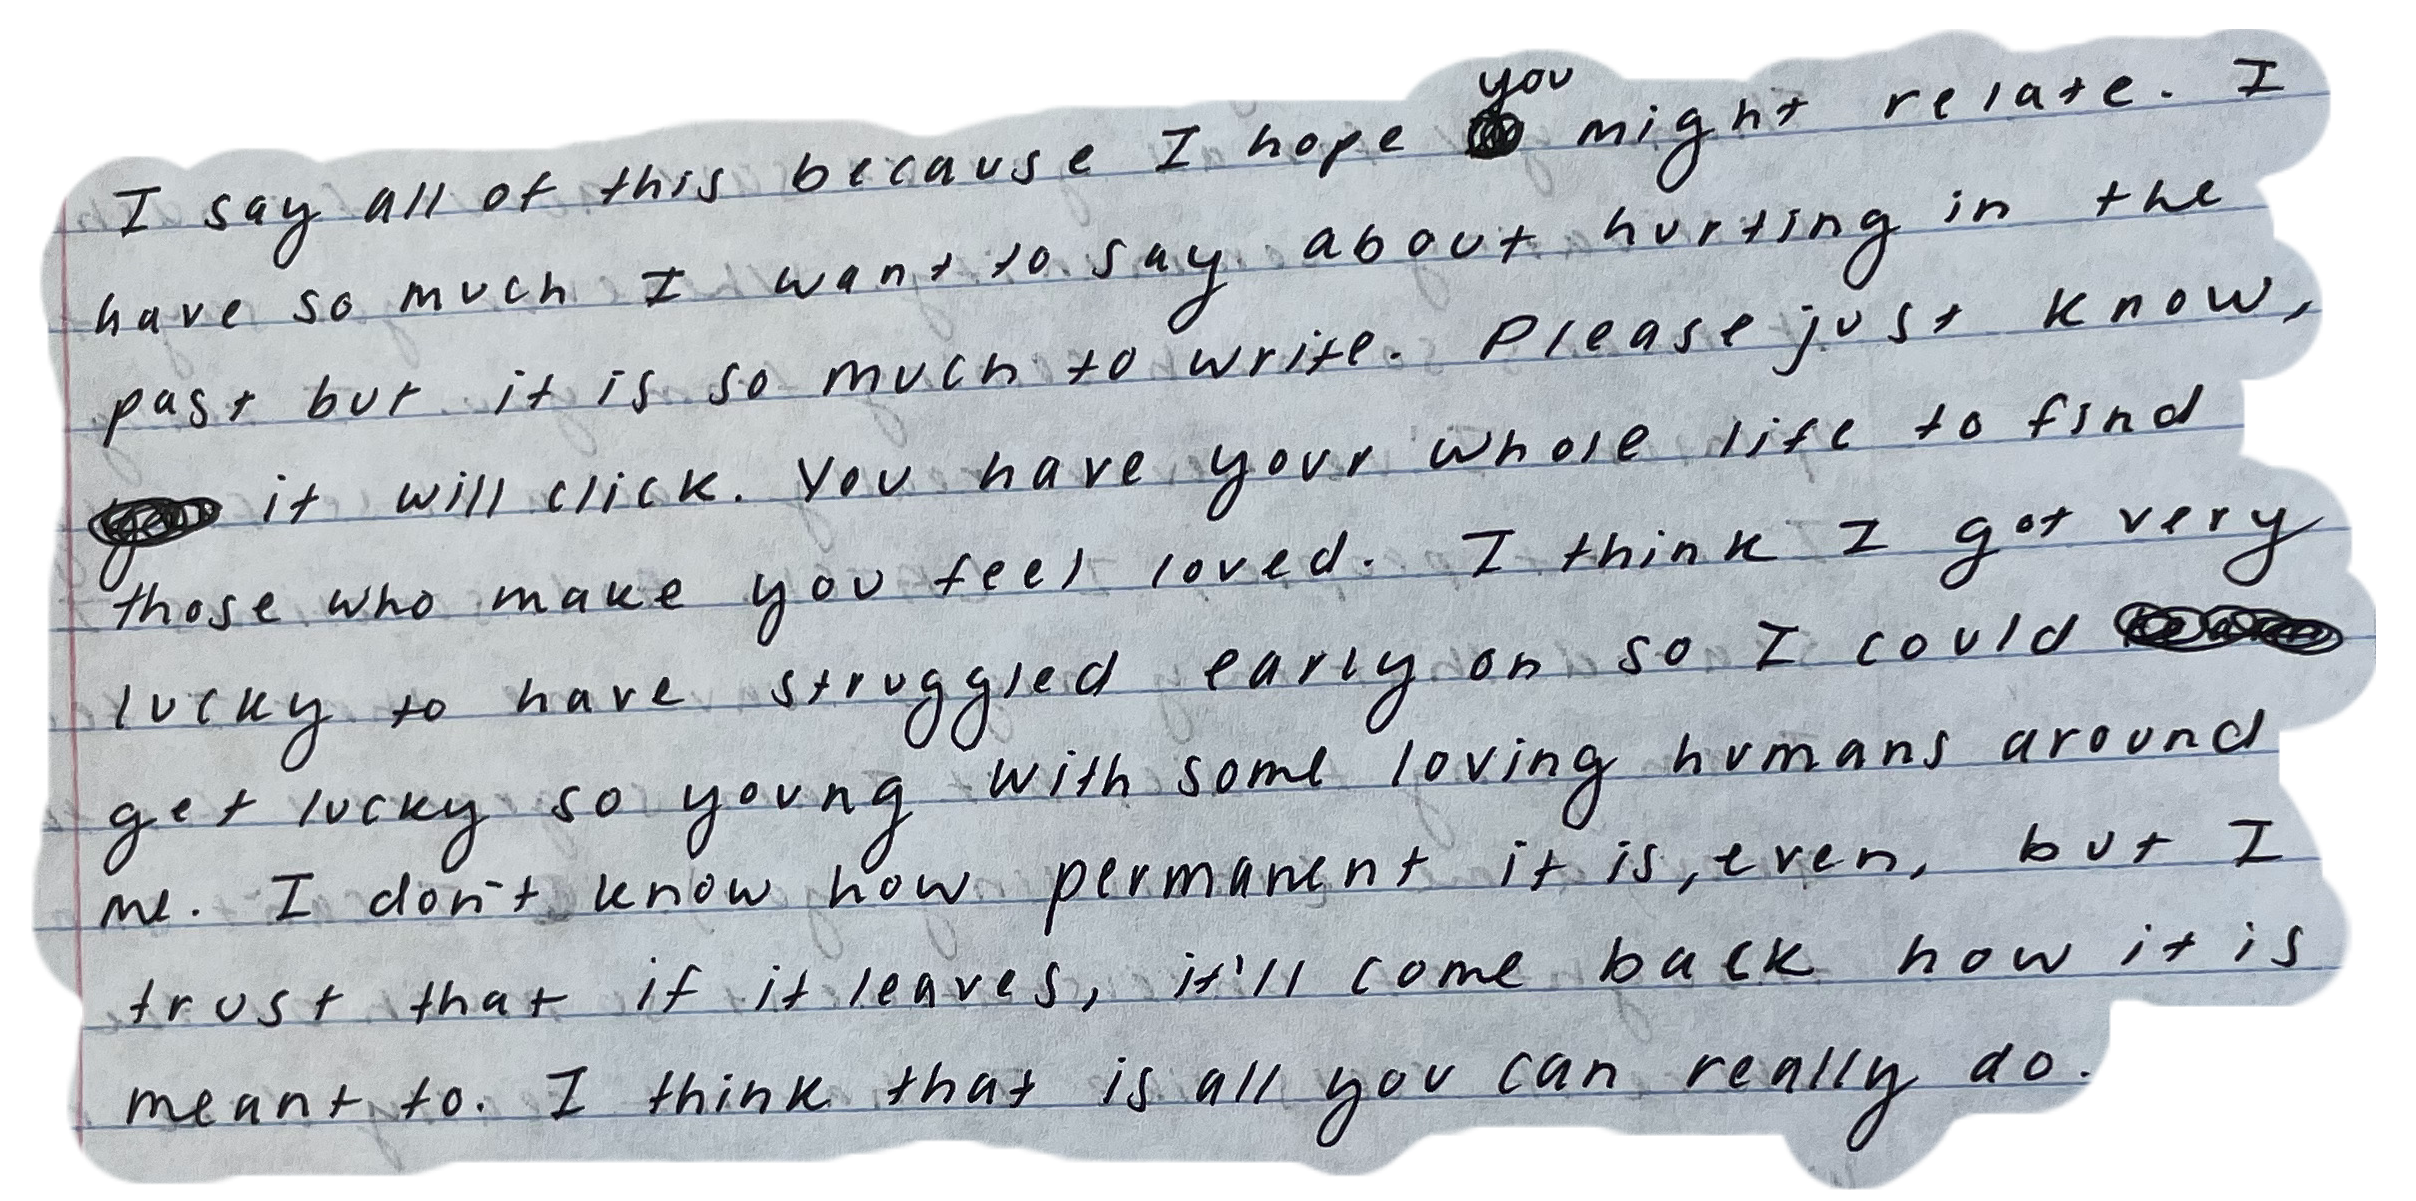 I say all of this because I hope you might relate. I
have so much I want to say about hurting in the
past but it is so much to write. Please just know,
it will click. You have your whole life to find
those who make you feel loved. I think I got very
lucky to have struggled early on so I could
get lucky so young with some loving humans around
me. I don't know how permanent it is, even, but I
trust that if it leaves, it'll come back how it is
meant to. I think that is all you can really do.